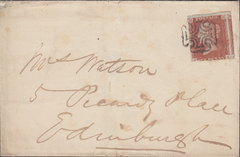 Mrs Watson
5 Picardy Place
Edinburgh